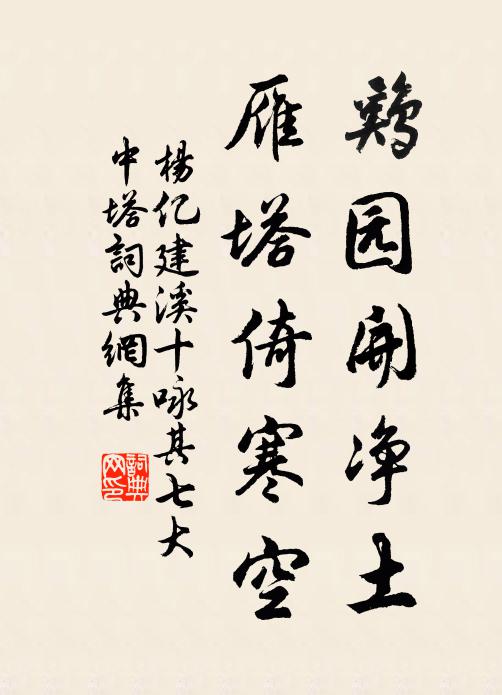 鷄园開净土
雁塔倚寒空
楊亿建溪十咏其七大
中塔詞典網集
詞典网印